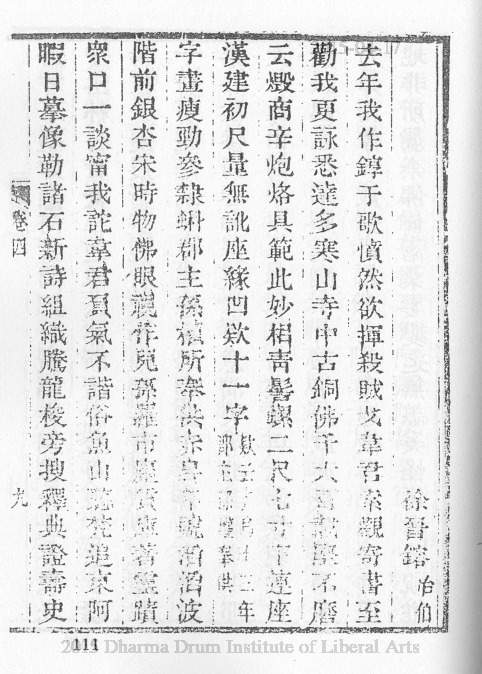 徐晉鎔 冶伯
去年我作錞于歌憤然欲揮殺賊戈韋君索觀寄書至
勸我更詠悉達多寒山寺中古銅佛千六百
云燬商辛炮烙具範此妙相靑髻螺二尺七寸下連座
漢建初尺量無訛座緣凹欵十一字
字畫瘦勁參隷蝌郡主孫權所奉供赤烏年號
階前銀杏宋時物佛眼視作兒孫羅市廛 著靈蹟
衆口一談甯我詑韋君負氣不諧俗魚山聽梵追東阿
暇日摹像勒諸石新詩組織騰龍梭旁搜釋典證壽史
卷四
九
111
2011 Dharma Drum Institute of Liberal Arts